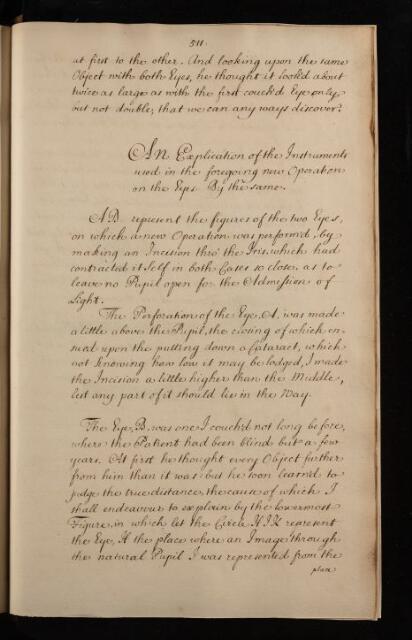 511.
at first to the other. And looking upon the same
Object with both Eyes, he thought it look'd about
twice as large as with the first couch'd Eye only,
but not double, that we can any ways discover.
An Explication of the Instruments
used in the foregoing new Operation
on the Eyes By the same.
A.B. represent the figures of the two Eyes,
on which a new Operation was perform'd, by
making an Incision thro' the Iris, which had
contracted it self in both Cases so close, as to
leave no Pupil open for the Admission of
Light.
The Perforation of the Eye, A. was made
a little above the Pupil, the closing of which en-
sued upon the putting down a Cataract, which
not knowing how low it may be lodged, I made
the Incision a little higher than the Middle,
lest any part of it should lie in the Way.
The Eye, B. was one I couch'd not long before,
where the Patient had been blind but a few
years. At first he thought every Object further
from him than it was: but he soon learn'd to
judge the true distance, the cause of which I
shall endeavour to explain by the lowermost
Figure, in which let the Circle H I K represent
the Eye, H the place where an Image through
the natural Pupil I was represented from the
place